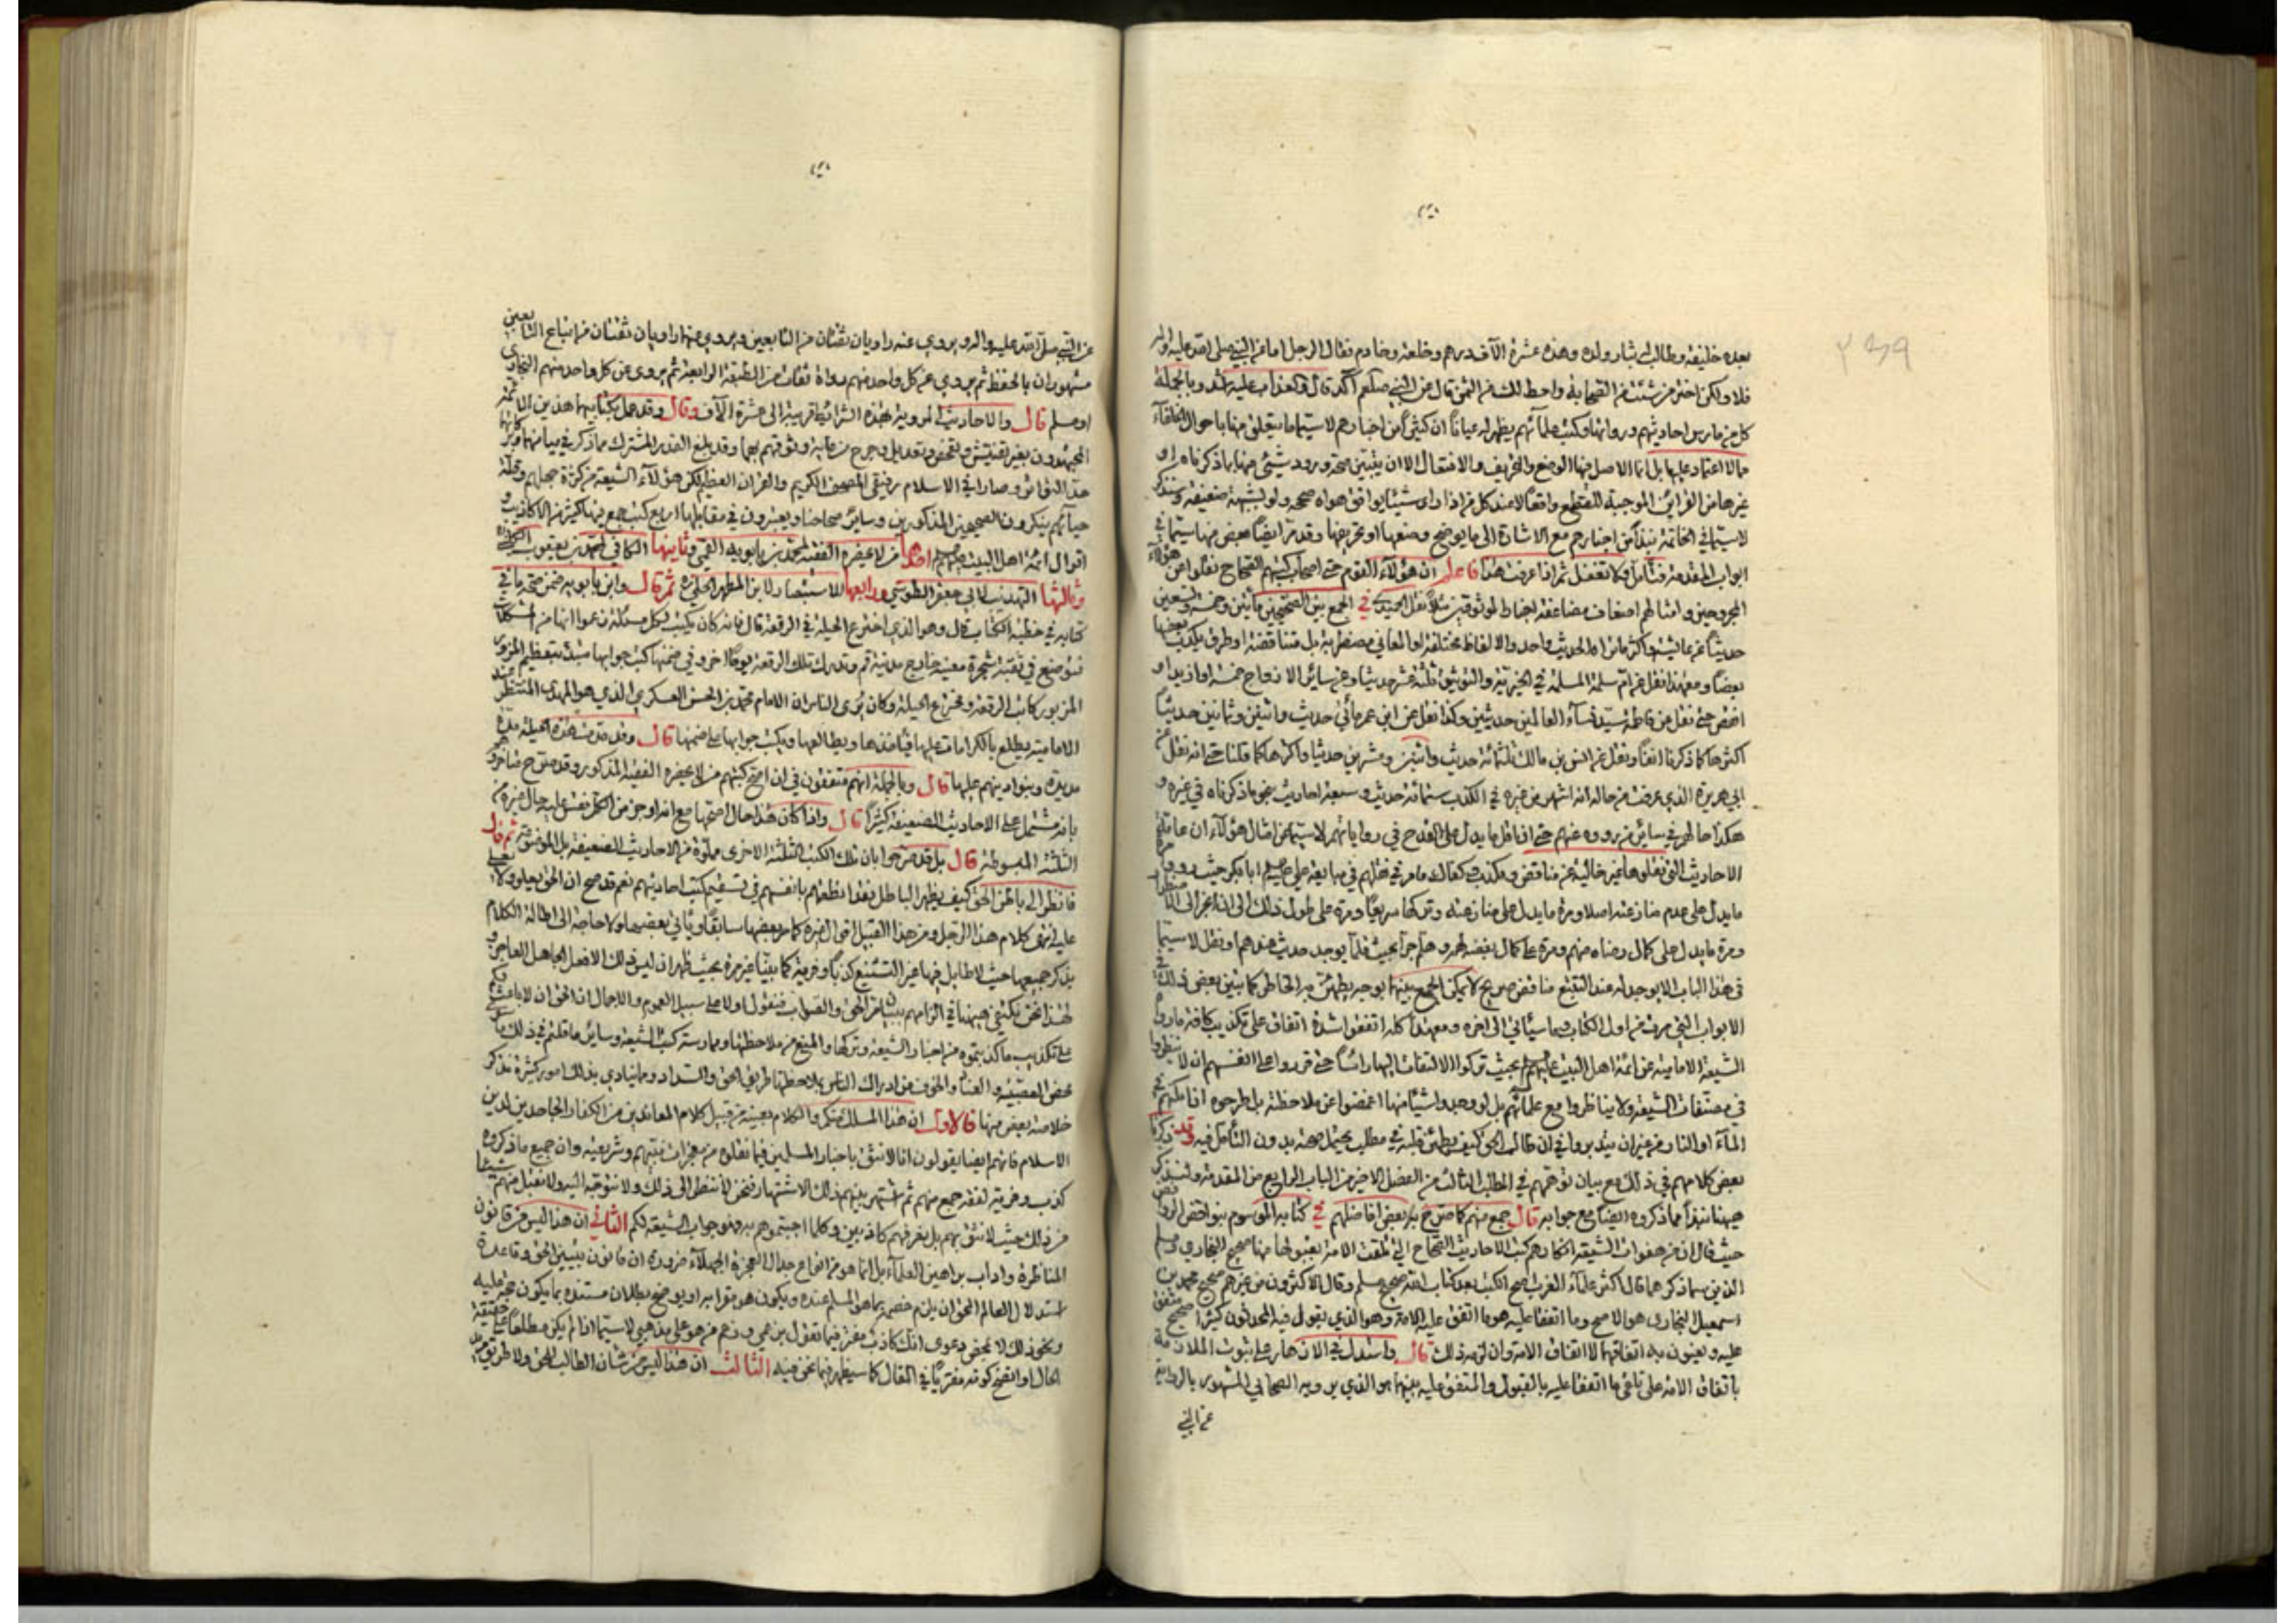 ٢٣٩
بعده خليفة وطالب بثار ولده وهذه عشرة الآف درهم وخلعة وخادم فقال الرجل اما عن النبي صلى الله عليه واله
فلا ولكن اختر من شئت من الصحابة واحطك من الثمن قال عن النبي صلعم آكد قال والعذاب عليه اشد وبالجملة
كل من مارس احاديثهم ورواتها وكتب علمائهم يظهر له عياناً ان كثيراً من اخبارهم لا سيما ما يتعلق منها باحوال الخلفاء
مما لا اعتماد عليها بل انما الاصل فيها الوضع والتحريف والافتعال الا ان يتبين صحة ورود شيء منها بما ذكرناه او
غيرها من القرائن الموجبة للقطع واقعاً لا عند كل من اذا راى شيئا يوافق هواه صححه ولو لشبهة ضعيفة وسنذكر
لا سيما في الخاتمة نبذاً من اخبارهم مع الاشارة الى ما يوضح وضعها او تحريفها وقد مر ايضاً بعض منها سيما في
ابواب المقدمة فتأمل ولا تغفل ثم اذا عرفت هذا فاعلم ان هؤلآء القوم حتى اصحاب كتبهم الصحاح نقلوا عن هؤلآء
المجروحين وامثالهم اضعاف مضاعفة اخبار الموثوقين مثلاً نقل الحميدي في الجمع بين الصحيحين مأتين وخمسة وتسعين
حديثاً عن عائشة واكثر ما يراه الحديث واحد والالفاظ مختلفة او المعاني مضطربة بل متناقضة او طرف يكذب بعضها
بعضاً ومع هذا نقل عن ام سلمة المسلمة في الخيرية والتوثيق ثلثة عشر حديثا وعن سائر الازواج خمسة او ازيد او
انقص حتى نقل عن فاطمة سيدة نسآء العالمين حديثين وكذا نقل عن ابن عمر مأتي حديث واثنين وثمانين حديثاً
اكثرها كما ذكرنا انفاً ونقل عن انس بن مالك ثلثمائة حديث واثنين وعشرين حديثا واكثرها كما قلنا حتى انه نقل عن
ابي هريرة الذي عرفت من حاله انه اشهر من غيره في الكذب ستمائة حديث وسبعة احاديث نحو ما ذكرناه في غيره و
هكذا حالهم في سائر من رووه عنهم حتى اذا نقل ما يدل على القدح في رواياتهم لا سيما عن امثال هؤلآء ان عامة
الاحاديث التي نقلوها غير خالية عن مناقض ومكذب كفاك ما مر في نقلهم في مبايعة علي عليلم ابا بكر حيث رووا مرة
ما يدل على عدم منازعته اصلا ومرة ما يدل على منازعته وتركها سريعاً ومرة على طول ذلك الى ان انجر الى الاضطرار
ومرة ما يدل على كمال رضاه منهم ومرة على كمال بغضه لهم وهلم جرا بحيث قلما يوجد حديث عندهم ونقل لا سيما
في هذا الباب الا يوجد له عند التتبع مناقض صريح لا يمكن الجمع بينهما بوجه يطمئن به الخاطر كما بين بعض ذلك في
الابواب التي مرت من اول الكتاب وفيما سيأتي الى اخره ومع هذا كله اتفقوا اشدة اتفاق على تكذيب كافة ما روا
الشيعة الامامية عن ائمة اهل البيت عليهم بحيث تركوا الالتفات اليها راساً حتى قرروا على انفسهم ان لا ينظروا
في مصنفات الشيعة ولا يناظروا مع علمائهم بل لو وجدوا شيئا منها اغمضوا عن ملاحظته بل طرحوه اذا امكنهم في
المآء او النار من غير ان يتدبروا في ان طالب الحق كيف يطمئن قلبه في مطلب يحتمل صحته بدون التأمل فيه وقد ذكرنا
بعض كلامهم في ذلك مع بيان توهمهم في المطلب الثالث من الفصل الاخير من الباب الرابع من المقدمة ولنذكر
هيهنا نبذاً مما ذكروه ايضا مع جوابه قال جمع منهم كما صرح به بعض افاضلهم في كتابه الموسوم بنواقض الروافض
حيث قال ان من هفوات الشيعة انكارهم كتب الاحاديث الصحاح التي تلقت الامة بقبولها منها صحيح البخاري ومسلم
الذين سما ذكرهما قال اكثر علمآء الغرب اصح الكتب بعد كتاب الله صحيح مسلم وقال الاكثرون من غيرهم صحيح محمد بن
اسمعيل البخاري هو الاصح وما اتفقا عليه هو ما اتفق عليه الامة وهو الذي يقول فيه المحدثون كثيرا صحيح متفق
عليه ويعنون به اتفاقهما لا اتفاق الامة وان لزمه ذلك قال واستدل في الازهار على ثبوت الملازمة
باتفاق الامة على تلقي ما اتفقا عليه بالقبول والمتفق عليه بينهما هو الذي يرويه الصحابي المشهور بالرواية
عن النبي
عن النبي صلى الله عليه واله ويروي عنه راويان ثقتان من التابعين ويروي عنهما راويان ثقتان من اتباع التابعين
مشهوران بالحفظ ثم يروي عن كل واحد منهم رواة ثقات من الطبقة الرابعة ثم يروى عن كل واحد منهم البخاري
او مسلم قال والاحاديث المروية بهذه الشرائط قريبة الى عشرة الآف وقال وقد عمل بكتابيهما هذين الائمة
المجتهدون بغير تفتيش وتفحص وتعديل وجرح وقد بلغ القدر المشترك مما ذكر في
حد التواتر وصارا في الاسلام رفيقي المصحف الكريم والقران العظيم لكن هؤلآء الشيعة من كثرة جهلهم وقلة
حيائهم ينكرون الصحيحين المذكورين وسائر صحاحنا ويعتبرون في مقابلها اربع كتب جمع فيها كثير من الاكاذيب و
اقوال ائمة اهل البيت عليهم احدها من لا يحضره الفقيه لمحمد بن بابويه القمي وثانيها الكافي لمحمد بن يعقوب
وثالثها التهذيب لابي جعفر الطوسي ورابعها الاستبصار لابن المطهر الحلي ثم قال وابن بابويه ضمن صحة ما في
كتابه في خطبة الكتاب قال وهو الذي اخترع الحيلة في الرقعة قال فانه كان يكتب لكل مسئلة زعموا انها من المشكلات
فتوضع في ثقبة شجرة معينة خارج مدينة قم وتدرك تلك الرقعة يوماً اخر وفي ضمنها كتب جوابها
المزبور كاتب الرقعة ومخترع الحيلة وكان يُرى الناس ان الامام محمد بن الحسن العسكري الذي هو المهدي المنتظر عند
الامامية يطلع بالكرامات عليها فيأخذها ويطالعها ويكتب جوابها على ضمنها قال وقد تمت هذه الحيلة مدة
مديدة وبنوا دينهم عليها قال وبالجملة انهم متفقون في ان اصح كتبهم من لا يحضره الفقيه المذكور وقد صرح
بانه مشتمل على الاحاديث الضعيفة كثيراً قال واذا كان هذا حال اصحها مع انه اوجز من الكل فقس عليه حال غيره من
الثلثة المبسوطة قال بل قد صرحوا بان تلك الكتب الثلثة الاخرى مملوة من الاحاديث الضعيفة بل ثم قال
فانظر الى باطن الحق كيف يظهر الباطل بعد انطقهم بانفسهم في تسقيم كتب احاديثهم نعم قد صح ان الحق يعلو ولا يعلى
عليه انتهى كلام هذا الرجل ومن هذا القبيل اقوال غيره كما مر بعضها سابقاً ويأتي بعضها ولا حاجة الى اطالة الكلام
بذكر جميعها حيث لا طايل فيها غير التشنيع كذباً وفرية كما بيّنا غير مرة بحيث ظهر ان ليس ذلك الا فعل الجاهل العاجز و
لهذا نحن نكتفي هيهنا في الزامهم ببيان الحق والصواب فنقول اولا على سبيل العموم والاجمال ان الحق ان لا باعث لكم
على تكذيب ما كذبتموه من اخبار الشيعة وتركها والمنع من ملاحظتها وممارسة كتب الشيعة وسائر ما قلتم في ذلك الا
محض العصبية والعناد والخوف من ادراك الناس بملاحظتها طريق الحق والسداد ومما ينادي بذلك امور كثيرة نذكر
خلاصة بعض منها فالاول ان هذا المسلك منكم والكلام بعينه من قبيل كلام المعاندين من الكفار الجاحدين لدين
الاسلام فانهم ايضا يقولون انا لا نثق باخبار المسلمين فيما نقلوه من معجزات نبيهم وشريعته وان جميع ما ذكروه
كذب وفرية لفقه جمع منهم ثم اشتهر بينهم ذلك الاشتهار فنحن لا ننظر الى ذلك ولا نتوجه اليه ولا نقبل منهم شيئا
من ذلك حيث لا نثق بهم بل نعرفهم كاذبين وكلما اجبتموهم به فهو جواب الشيعة لكم الثاني ان هذا ليس من قانون
المناظرة واداب براهين العلمآء بل انما هو من انواع جدال العجزة الجهلآء ضرورة ان قانون تبيين الحق وقاعدة
استدلال العالم المحق ان يلزم خصمه بما هو المسلم عنده ويكون هو مقرا به او يوضح بطلان مستنده بما يكون حجة عليه
ونحو ذلك لا بمحض دعوى انك كاذب مفتر فيما تقول لا سيما اذا لم يكن مطلعاً على حقيقة
الحال او اتضح كونه مفترياً في المقال كما سيظهر فيما نحن فيه الثالث ان هذا ليس من شأن الطالب للحق ولا طريق